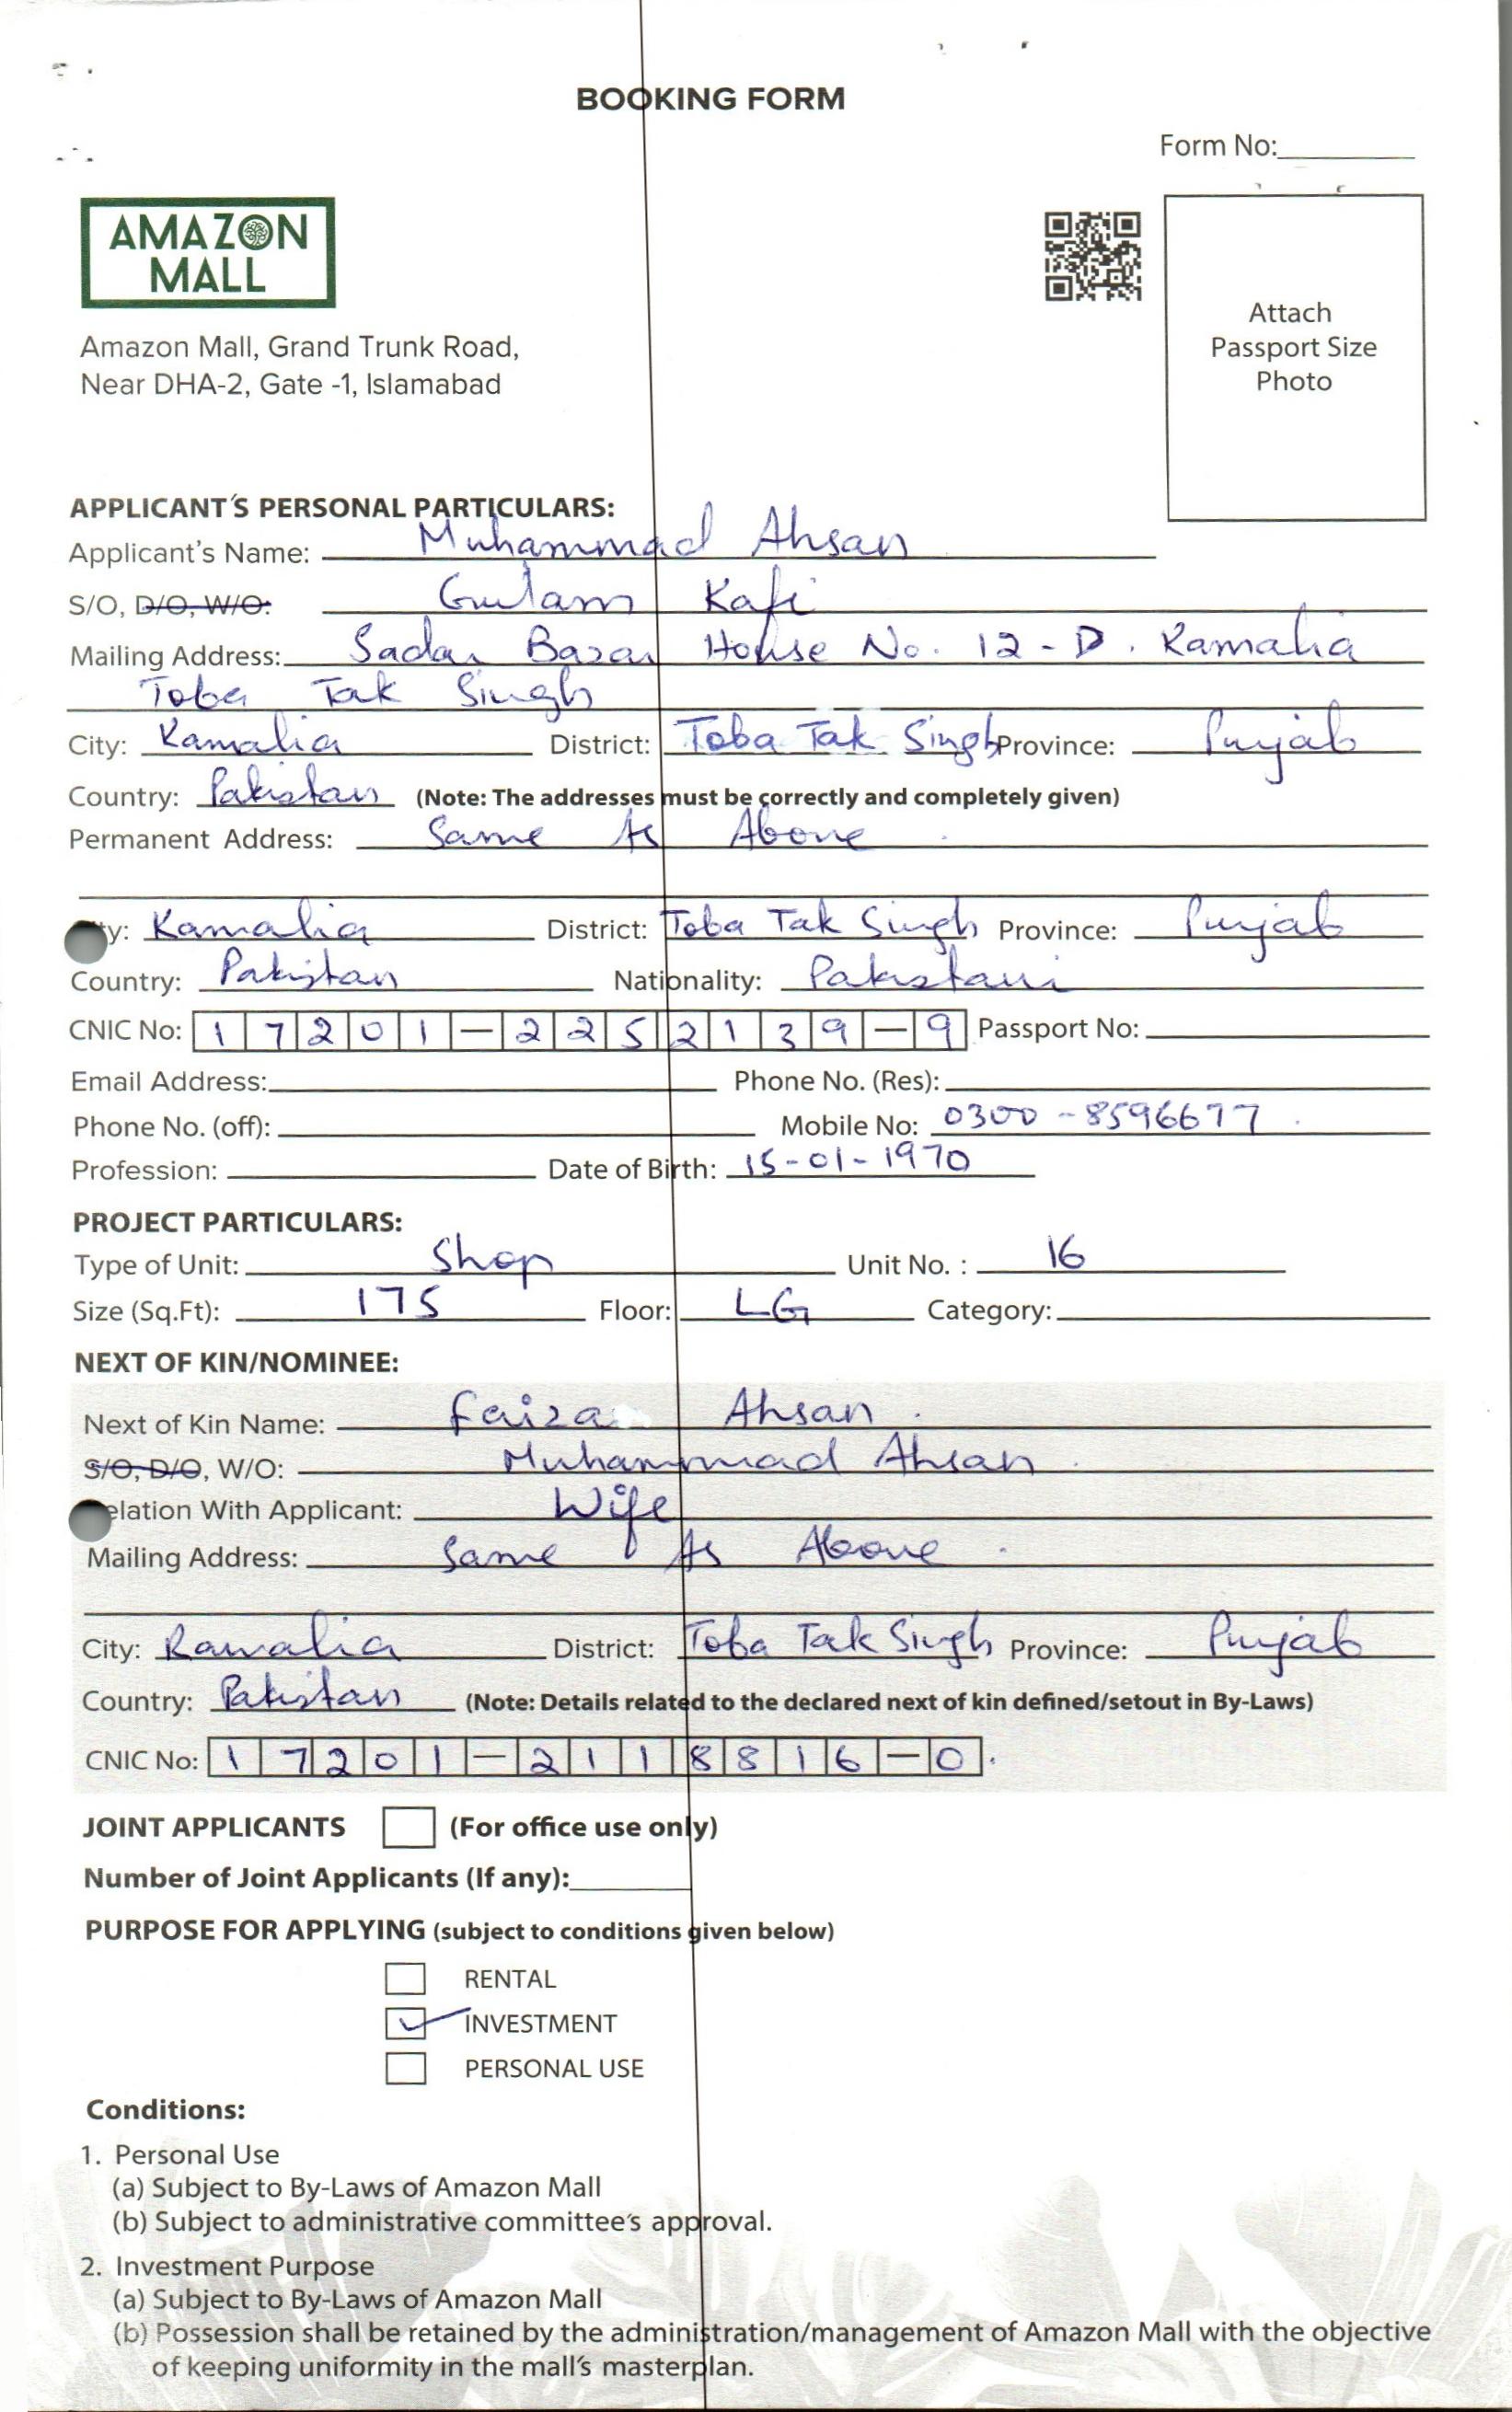 BOOKING FORM
Form No:
AMAZON
MALL
Attach
Passport Size
Photo
Amazon Mall, Grand Trunk Road,
Near DHA-2, Gate -1, Islamabad
APPLICANT'S PERSONAL PARTICULARS:
Applicant's Name: Muhammad Ahsan
S/O, D/O, W/O: Gulam Kafi
Mailing Address: Sadar Bazar House No. 12-D. Kamalia
Toba Tak Singh
City: Kamalia District: Toba Tak Singh Province: Punjab
Country: Pakistan (Note: The addresses must be correctly and completely given)
Permanent Address: Same As Above
City: Kamalia District: Toba Tak Singh Province: Punjab
Country: Pakistan Nationality: Pakistani
CNIC No: 17201-2252139-9 Passport No:
Email Address: Phone No. (Res):
Phone No. (off): Mobile No: 0300-8596677
Profession: Date of Birth: 15-01-1970
PROJECT PARTICULARS:
Type of Unit: Shop Unit No. : 16
Size (Sq.Ft): 175 Floor: LG Category:
NEXT OF KIN/NOMINEE:
Next of Kin Name: Faiza Ahsan
S/O, D/O, W/O: Muhammad Ahsan
elation With Applicant: Wife
Mailing Address: Same As Above
City: Kamalia District: Toba Tak Singh Province: Punjab
Country: Pakistan (Note: Details related to the declared next of kin defined/setout in By-Laws)
CNIC No: 17201-2118816-0
JOINT APPLICANTS (For office use only)
Number of Joint Applicants (If any):
PURPOSE FOR APPLYING (subject to conditions given below)
RENTAL
INVESTMENT
PERSONAL USE
Conditions:
1. Personal Use
(a) Subject to By-Laws of Amazon Mall
(b) Subject to administrative committee's approval.
2. Investment Purpose
(a) Subject to By-Laws of Amazon Mall
(b) Possession shall be retained by the administration/management of Amazon Mall with the objective
of keeping uniformity in the mall's masterplan.